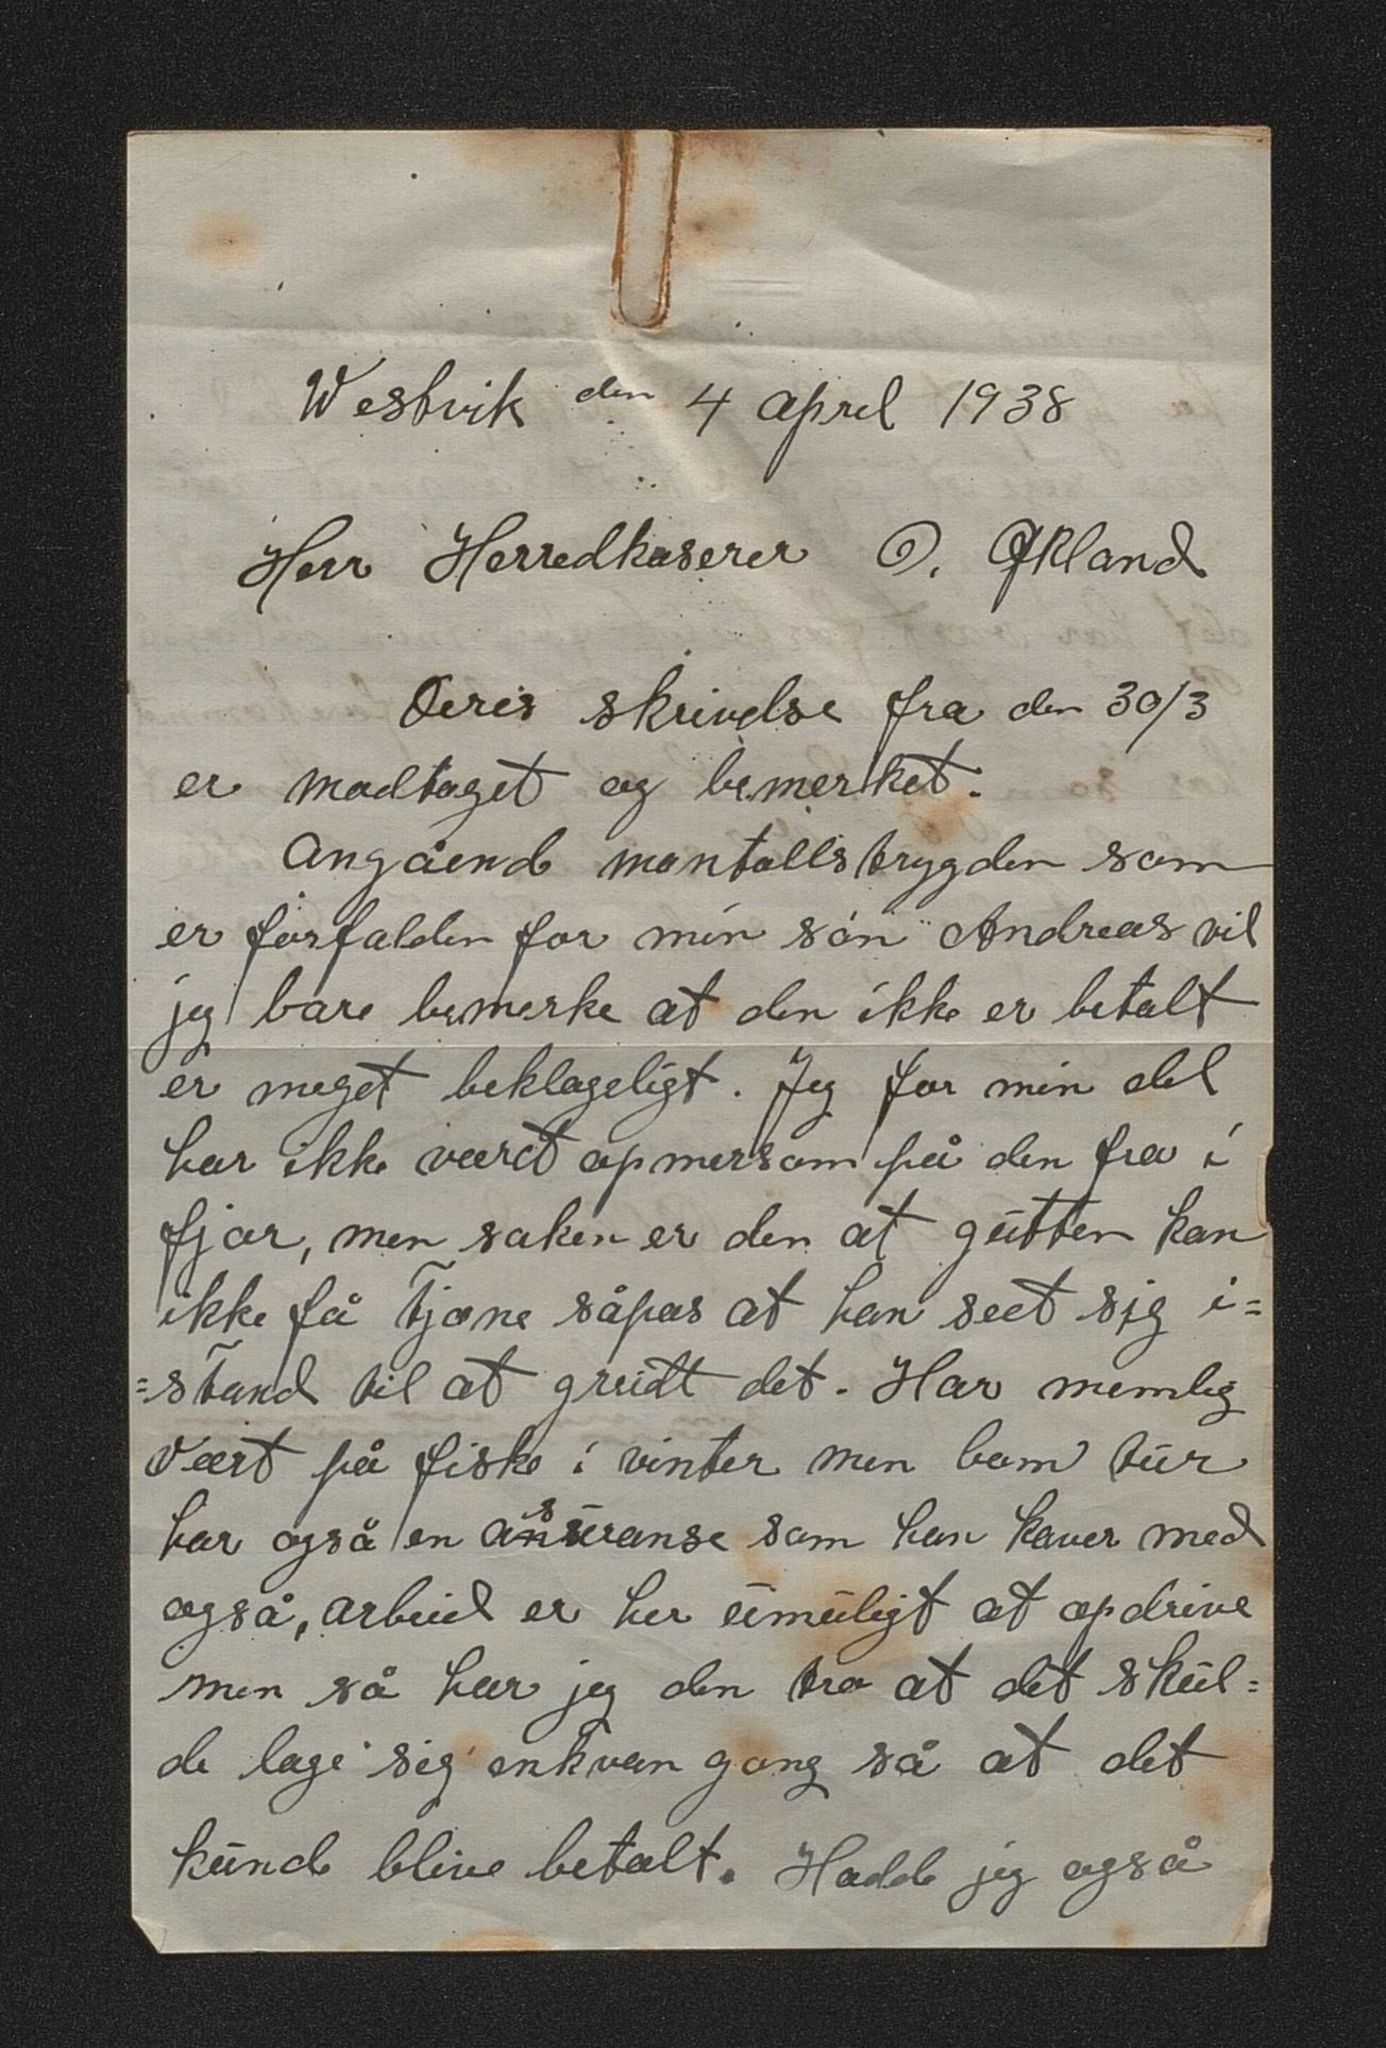 Westvik den 4 april 1938
Herr Herredkaserer O. Økland
Deres skrivelse fra den 30/3
er modtaget og bemerket.
Angåend mantallstrygden som
er forfalden for min sön Andreas vil
jeg bare bemerke at den ikke er betalt
er meget beklageligt. Jeg for min del
har ikke været opmersom på den fra i
fjor, men saken er den at gutten kan
ikke få Tjene såpas at han seet sig i=
=stand til at greidt det. Har nemlig
Vært på fiske i vinter men bom tur
har også en assuranse som han kaver med
også, arbeid er her umuligt at opdrive
men så har jeg den tro at det skul=
de lage sig enkvan gang så at det
kunde blive betalt. Hadde jeg også